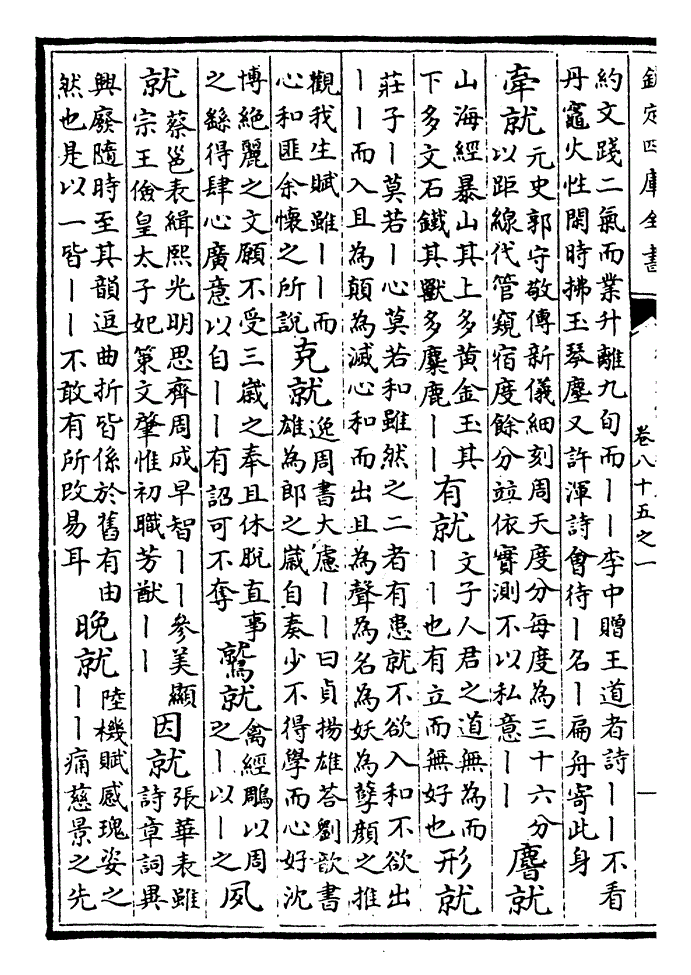 欽定四庫全書
卷八十五之一
約文踐二氣而業升離九旬而丨丨李中贈王道者詩丨丨不看
丹竈火性閑時拂玉琴塵又許渾詩會待丨名丨扁舟寄此身
牽就
元史郭守敬傳新儀細刻周天度分每度為三十六分
以距線代管窺宿度餘分竝依實測不以私意丨丨
麏就
山海經暴山其上多黃金玉其
下多文石鐵其獸多麋鹿丨丨
有就
文子人君之道無為而
丨丨也有立而無好也
形就
莊子丨莫若丨心莫若和雖然之二者有患就不欲入和不欲出
丨丨而入且為顛為滅心和而出且為聲為名為妖為孽顏之推
觀我生賦雖丨丨而
心和匪余懷之所說
克就
逸周書大慮丨丨曰貞揚雄荅劉歆書
雄為郎之歲自奏少不得學而心好沈
博絕麗之文願不受三歲之奉且休脫直事
之繇得肆心廣意以自丨丨有詔可不奪
鷲就
禽經鵰以周
之丨以丨之
夙
就
蔡邕表緝熙光明思齊周成早智丨丨參美顯
宗王儉皇太子妃策文肇惟初職芳猷丨丨
因就
張華表雖
詩章詞異
興廢隨時至其韻逗曲折皆係於舊有由
然也是以一皆丨丨不敢有所改易耳
晚就
陸機賦感瑰姿之
丨丨痛慈景之先